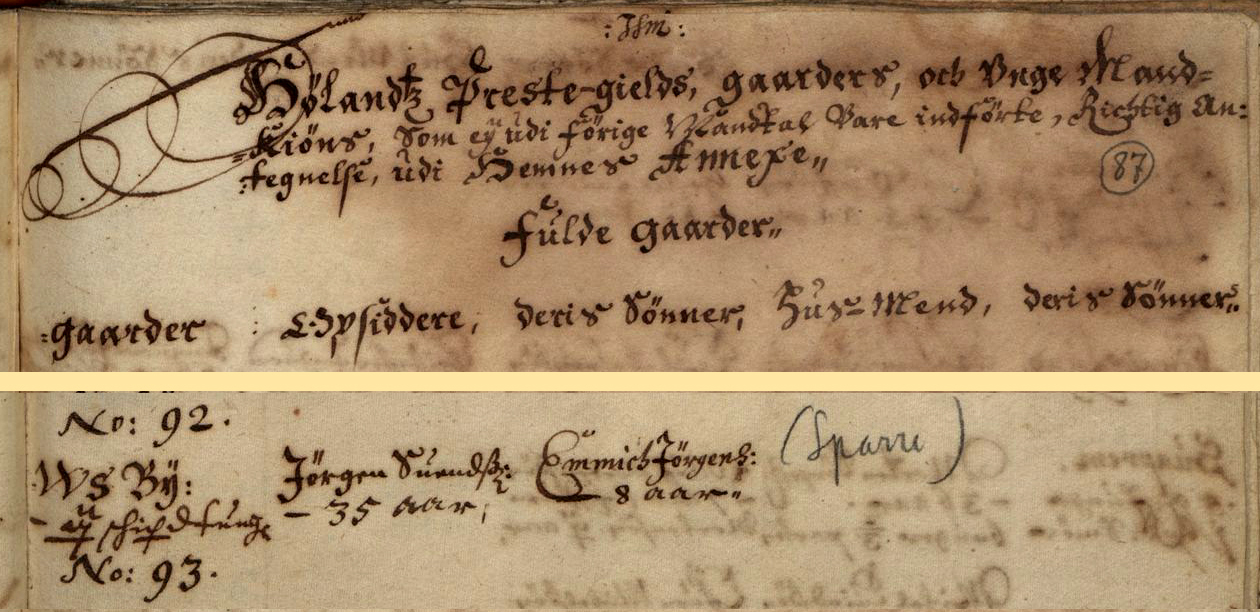 : Jhm :
Hølandtz Preste-gields, gaarders, och Vnge Mand=
=Kiöns, Som eÿ udi förige Mandtal Vare indförte, Richtig An:
:tegnelse, udi Hemnes Annexe„
fulde gaarder„
87
:gaarder : Opsiddere, deris Sönner, Huus-Mend, deris Sönner„
No: 92.
WS Bÿ: Jörgen Suendß: Emmich Jörgens: (Sparre)
- 35 aar, 8 aar„
schipd tunge
No: 93.